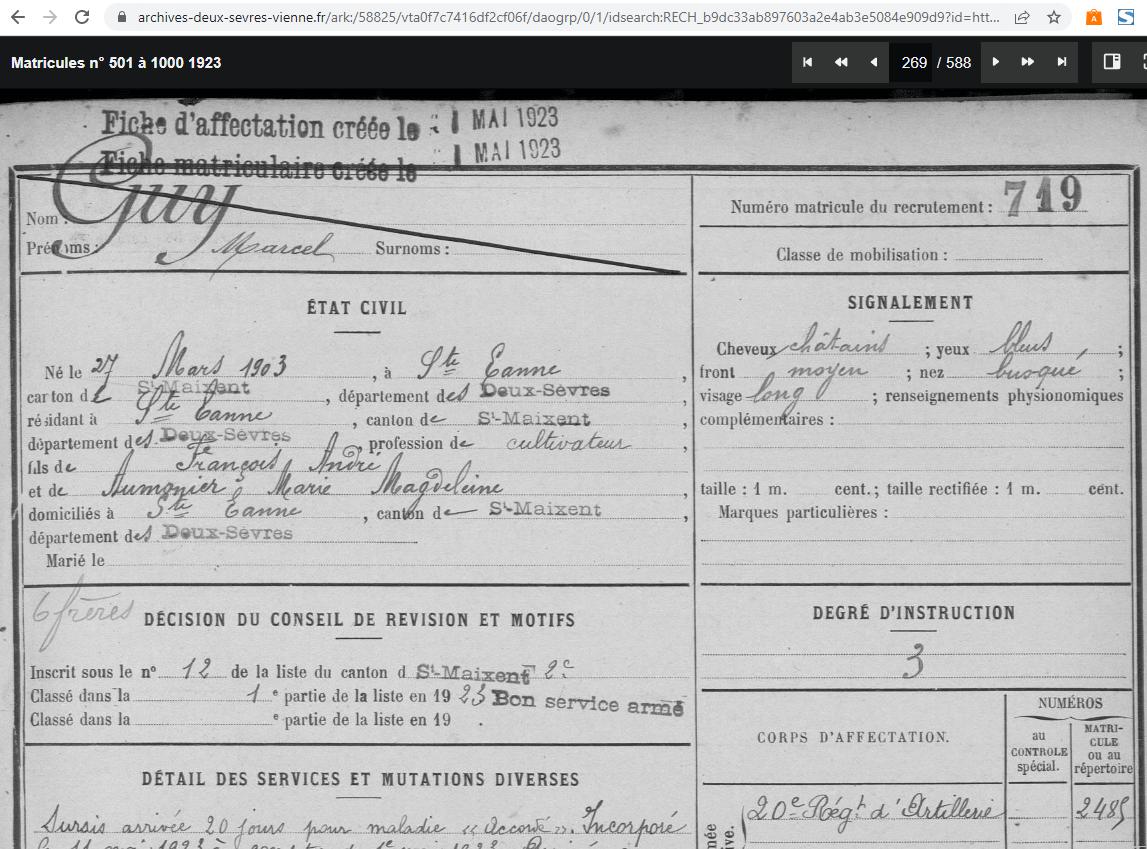 archives-deux-sevres-vienne.fr/ark:/58825/vta0f7c7416df2cf06f/daogrp/0/1/idsearch:RECH_b9dc33ab897603a2e4ab3e5084e909d9?id=htt...
Matricules n° 501 à 1000 1923
269 / 588
Fiche d'affectation créée le 1 MAI 1923
Fiche matriculaire créée le 1 MAI 1923
Nom : Guy
Prénoms : Marcel Surnoms :
Numéro matricule du recrutement : 719
Classe de mobilisation :
ÉTAT CIVIL
Né le 27 Mars 1903, à Ste Eanne,
canton de St-Maixent, département des Deux-Sèvres,
résidant à Ste Eanne, canton de St-Maixent,
département des Deux-Sèvres, profession de cultivateur,
fils de François André
et de Aumonier Marie Magdeleine,
domiciliés à Ste Eanne, canton de St-Maixent,
département des Deux-Sèvres
Marié le
SIGNALEMENT
Cheveux châtains ; yeux bleus ;
front moyen ; nez busqué ;
visage long ; renseignements physionomiques
complémentaires :
taille : 1 m. cent.; taille rectifiée : 1 m. cent.
Marques particulières :
6 frères
DÉCISION DU CONSEIL DE REVISION ET MOTIFS
Inscrit sous le n° 12 de la liste du canton d St-Maixent 2e
Classé dans la 1e partie de la liste en 1923 Bon service armé
Classé dans la e partie de la liste en 19 .
DEGRÉ D'INSTRUCTION
3
CORPS D'AFFECTATION.
NUMÉROS
au CONTROLE spécial.
MATRICULE ou au répertoire
20e Régt d'Artillerie 2485
DÉTAIL DES SERVICES ET MUTATIONS DIVERSES
Sursis arrivée 20 jours pour maladie « Accordé ». Incorporé